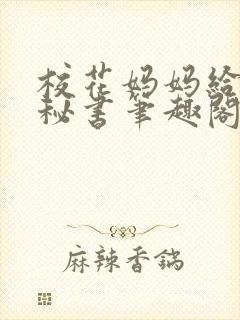 校花妈妈给
秘书笔趣阁
麻辣香鍋